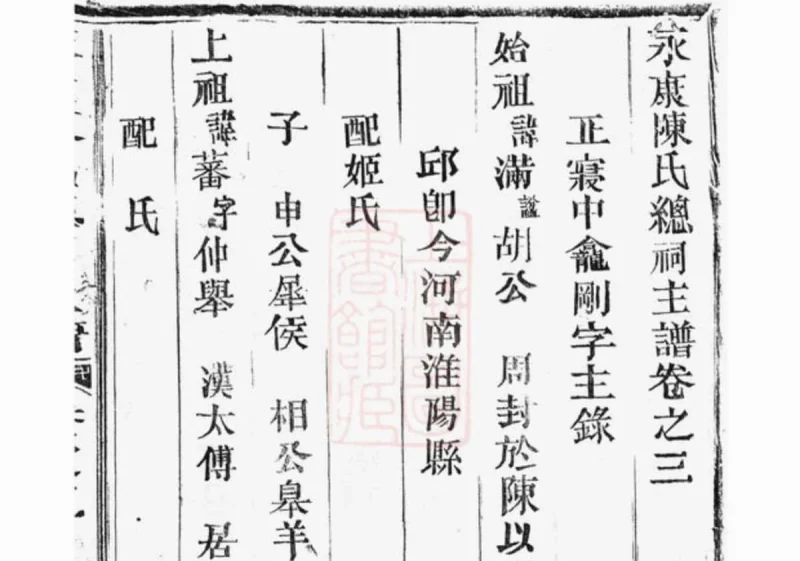 永康陳氏總祠主譜卷之三
正寢中龕剛字主錄
始祖諱滿諡胡公 周封於陳以
邱卽今河南淮陽縣
配姬氏
子 申公犀侯 相公皋羊
上祖諱蕃字仲舉 漢太傅 居
配 氏
上海圖書館藏